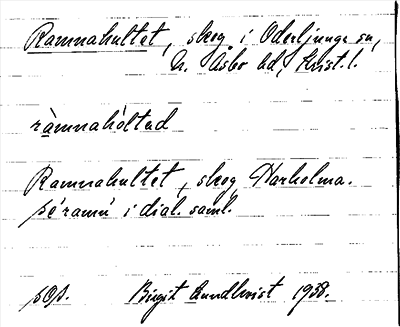 Ramnahultet, skog i Oderljunga sn,
N. Åsbo hd, Krist. l.
ràmnahóltad
Ramnahultet, skog Harholma.
på ramn i dial. saml.
sOp. Birgit Lundkvist 1938.